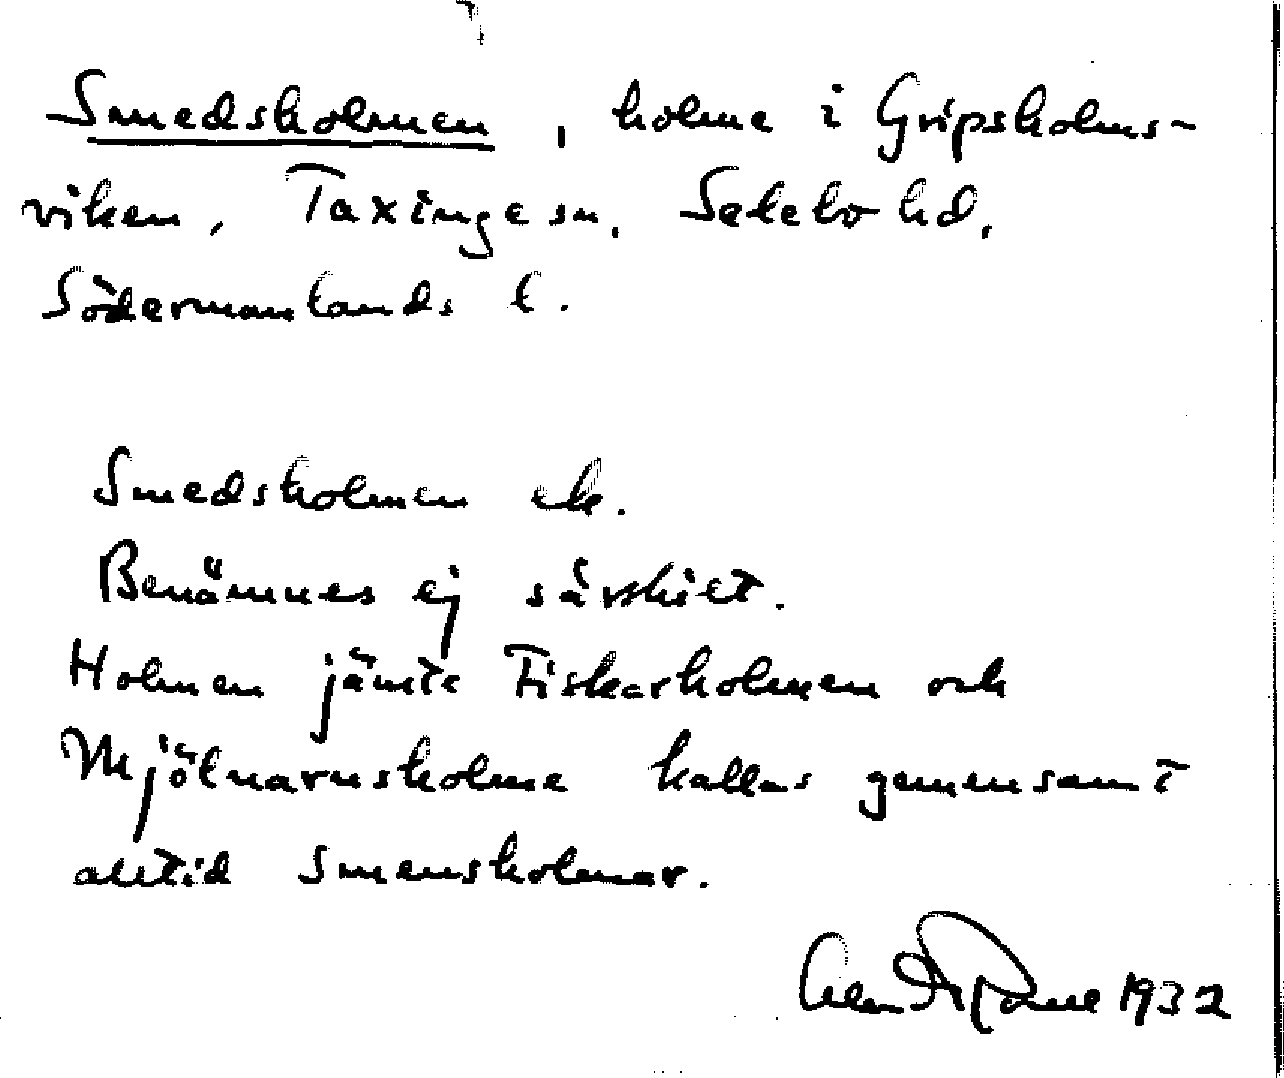 Smedsholmen, holme i Gripsholms-
viken, Taxinge sn, Selebo hd,
Södermanlands l.
Smedsholmen ek.
Benämnes ej särskilt.
Holmen jämte Fiskarholmen och
Mjölnarnsholme kallas gemensamt
alltid Smensholmar.
1932